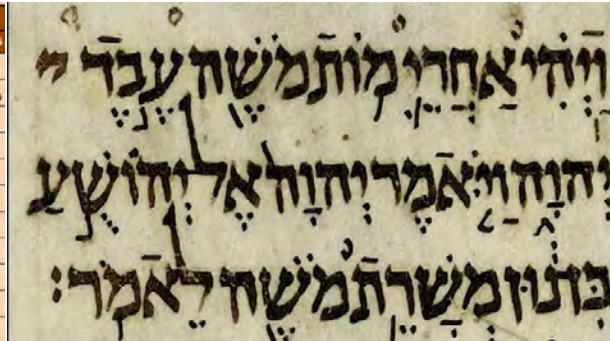 וַיְהִ֗י אַחֲרֵ֛י מ֥וֹת מֹשֶׁ֖ה עֶ֣בֶד י
יְהוָ֑ה וַיֹּ֤אמֶר יְהוָה֙ אֶל־יְהוֹשֻׁ֣עַ
בִּן־נ֔וּן מְשָׁרֵ֥ת מֹשֶׁ֖ה לֵאמֹֽר׃